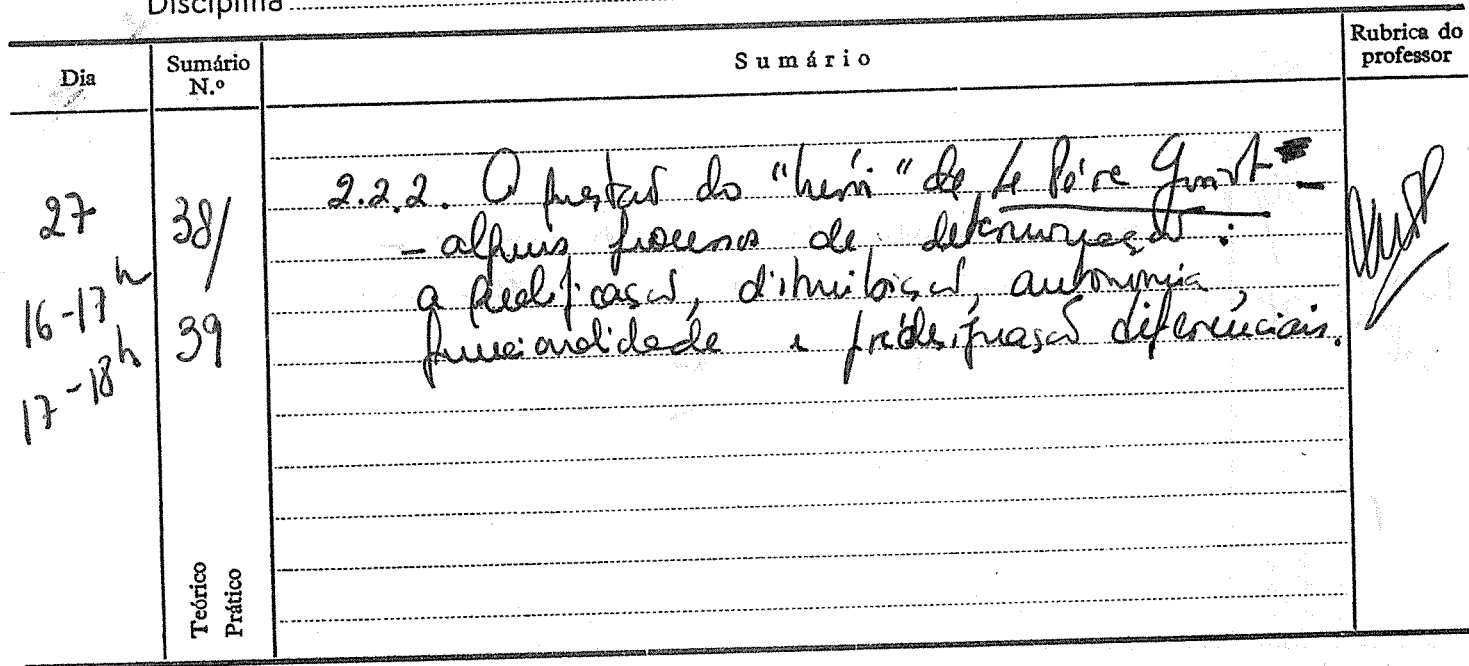 Disciplina
Dia
Sumário N.º
Sumário
Rubrica do professor
27
16-17h
17-18h
38/
39
2.2.2. A questão do "herói" de Le Père Goriot -
- alguns processos de determinação :
a qualificação, distribuição, autonomia,
funcionalidade e prédesignação diferenciais.
Teórico
Prático